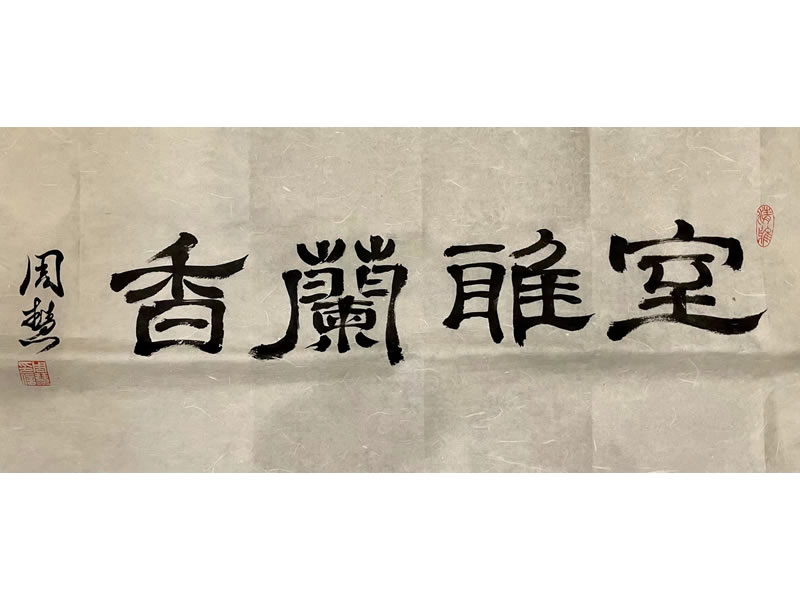 室雅蘭香
周慧